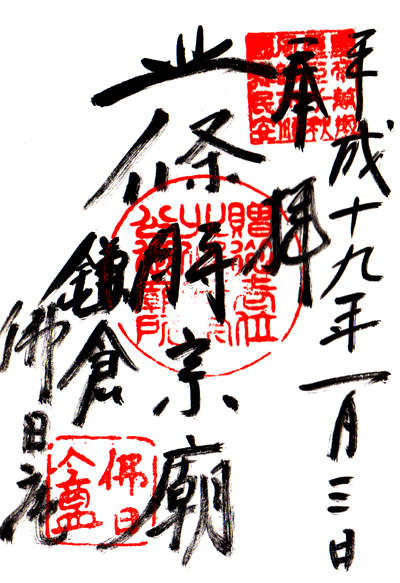 平成十九年一月三日
奉拝
北條時宗廟
鎌倉
佛日庵
佛日
盦